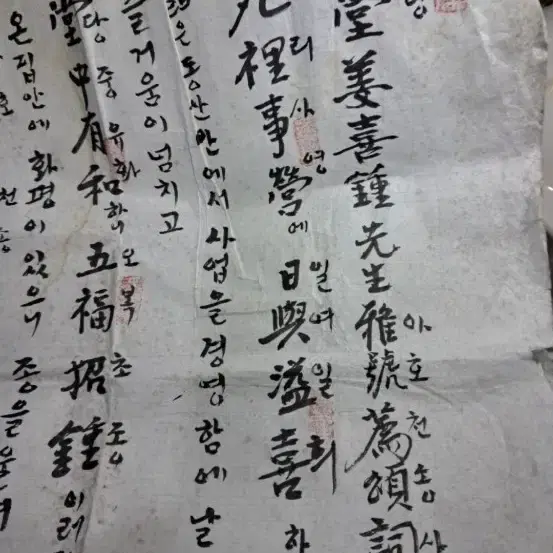 堂姜喜鍾先生雅號薦頌詞
아호천송사
裡事營에 日與溢喜하
리사영 일여일희
은 동산안에서 사업을 경영함에 날
즐거움이 넘치고
堂中有和하니 五福招鍾이러
당중유화 오복초종
온집안에 화평이 있으니 종을
천송